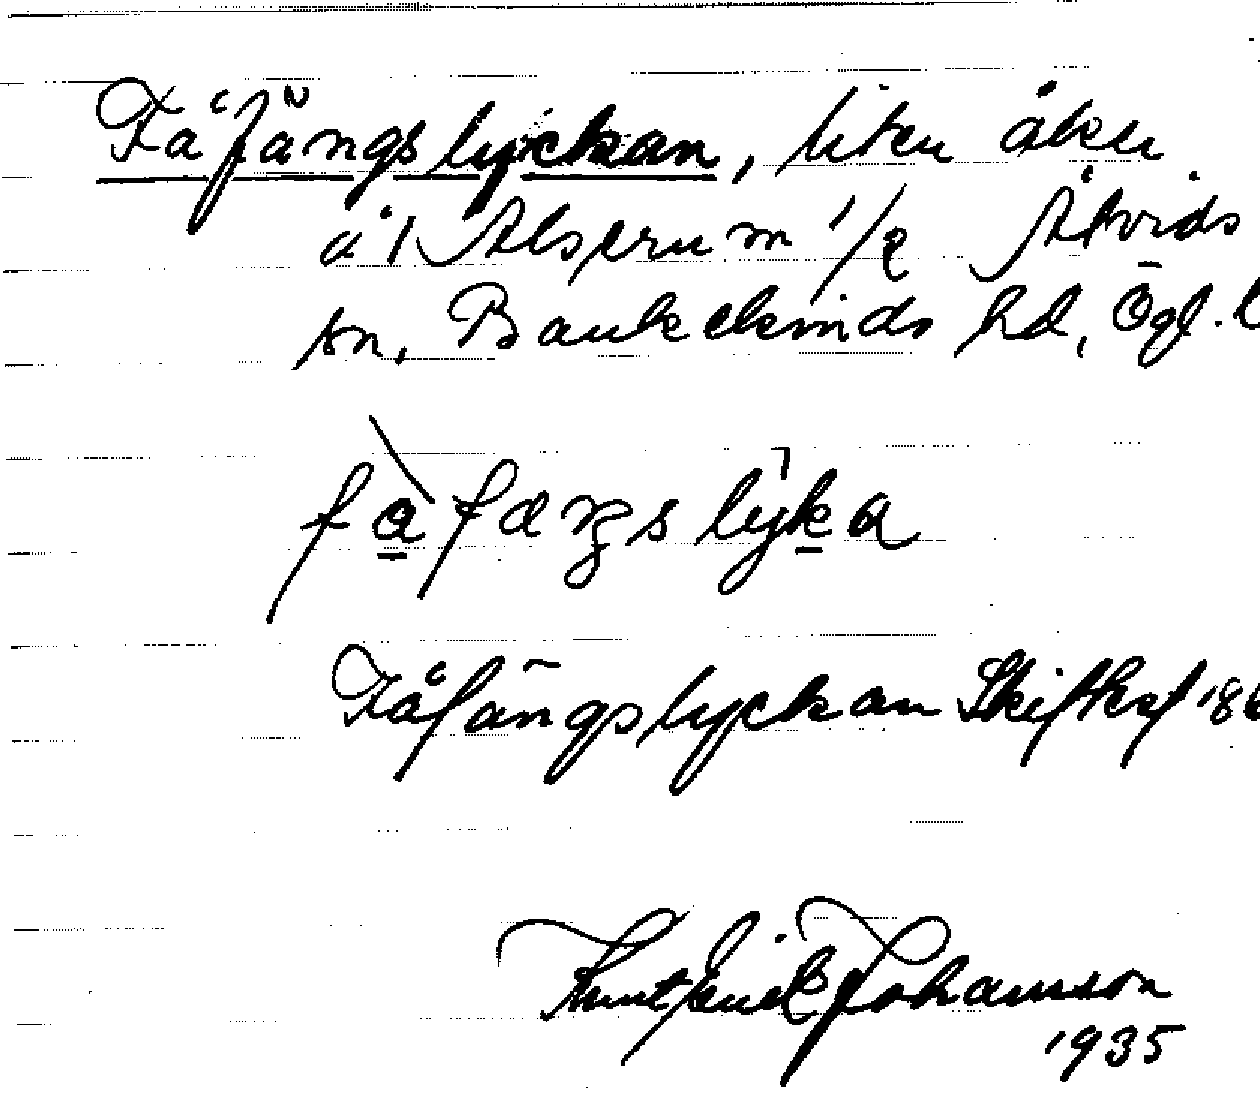 Fåfängslyckan, liten åker
å Alserum 1/2 Åtvids
sn, Bankekinds hd, Ögl. l
Fåfängslyckan Skifteskf 18
Knut Erik Johansson
1935